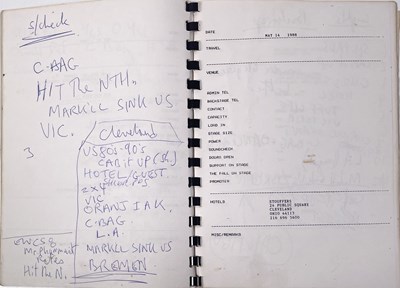 S/check
C-BAG
HIT THE NTH.
MARK'LL SINK US
VIC.
3
Cleveland
US 80s-90's
CAB IT UP (SH.)
HOTEL/GUEST.
2x4
VIC
ORANJ I A K.
C-BAG
L.A.
MARKLL SINK US
BREMEN
Hit the N.
DATE MAY 14 1988
TRAVEL
VENUE
ADMIN TEL
BACKSTAGE TEL
CONTACT
CAPACITY
LOAD IN
STAGE SIZE
POWER
SOUNDCHECK
DOORS OPEN
SUPPORT ON STAGE
THE FALL ON STAGE
PROMOTER
HOTELS STOUFFERS
24 PUBLIC SQUARE
CLEVELAND
OHIO 44113
216 696 5600
MISC/MEMOROS